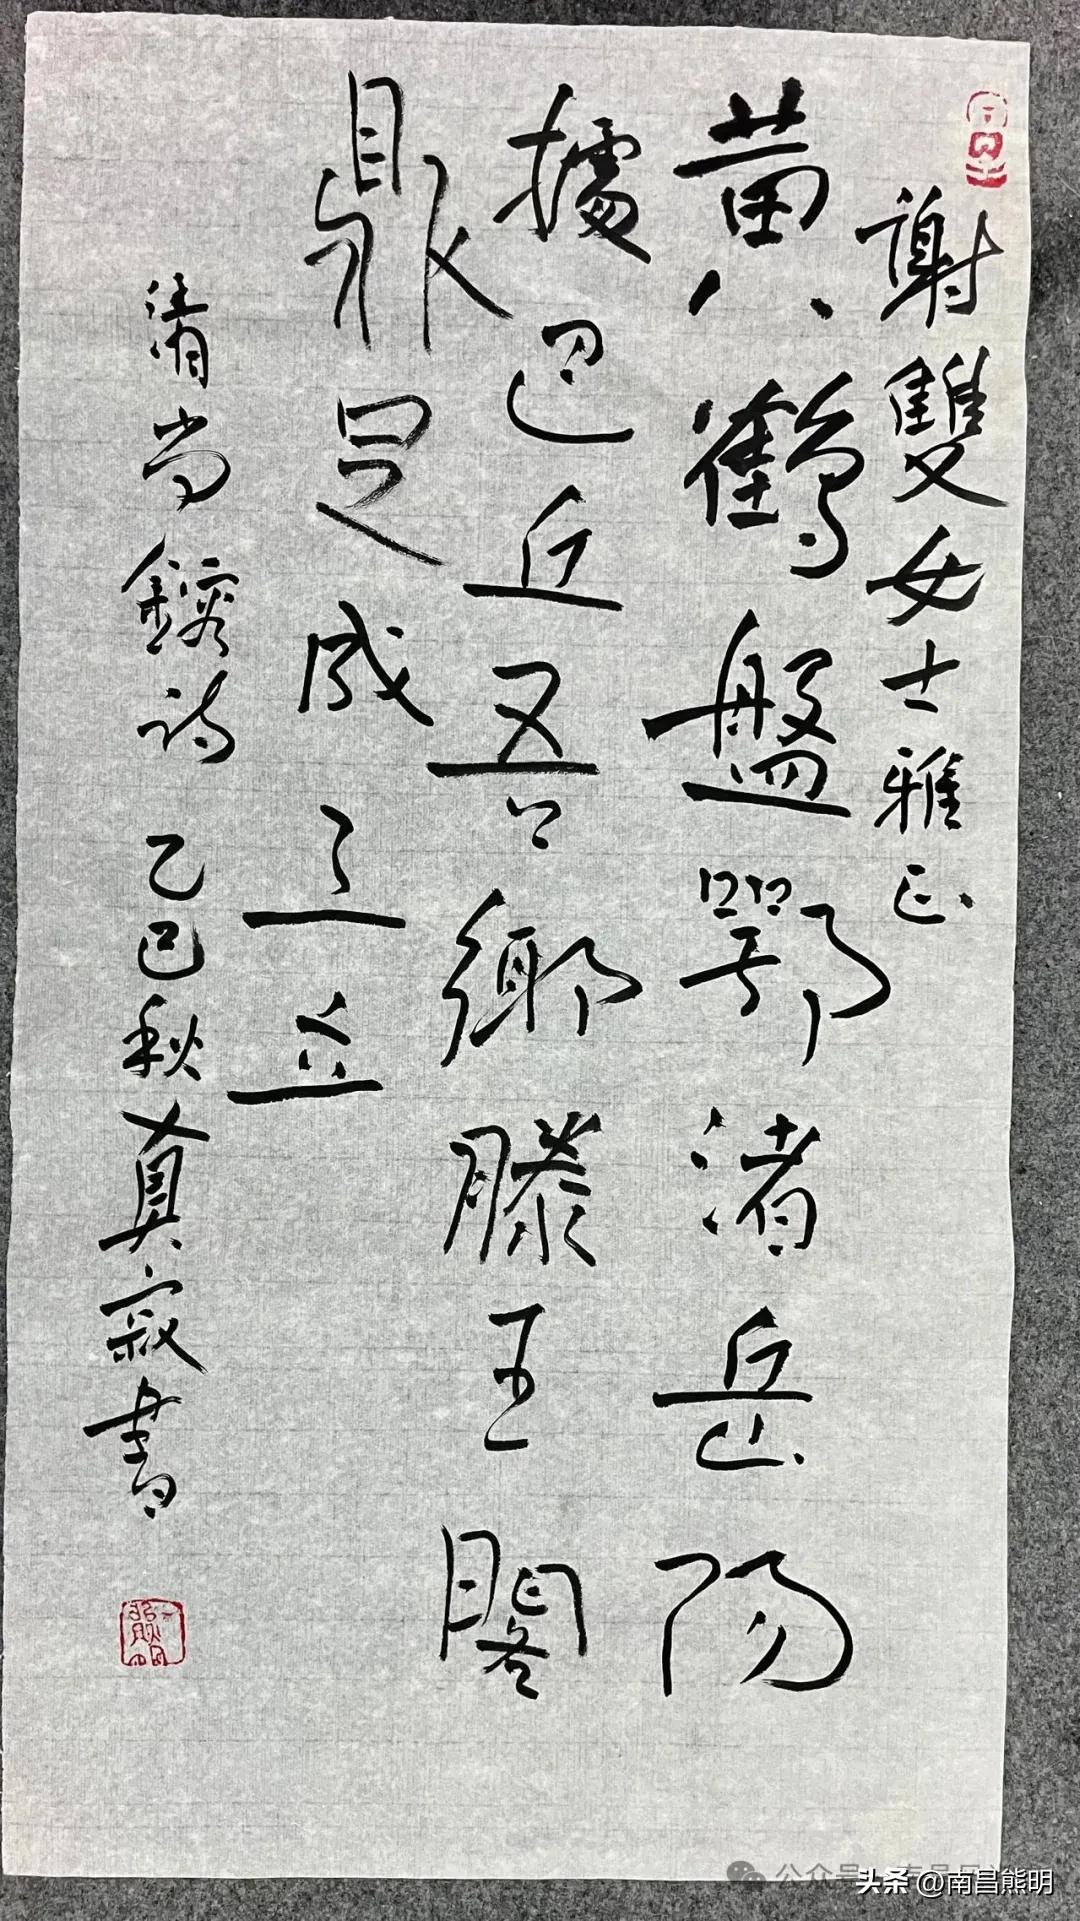 謝雙女士雅正
黄鶴盤鄂渚岳陽
據巴丘吾鄉滕王閣
鼎足成三立
清尚鎔詩 乙巳秋真寂書
公众号
头条 @南昌熊明